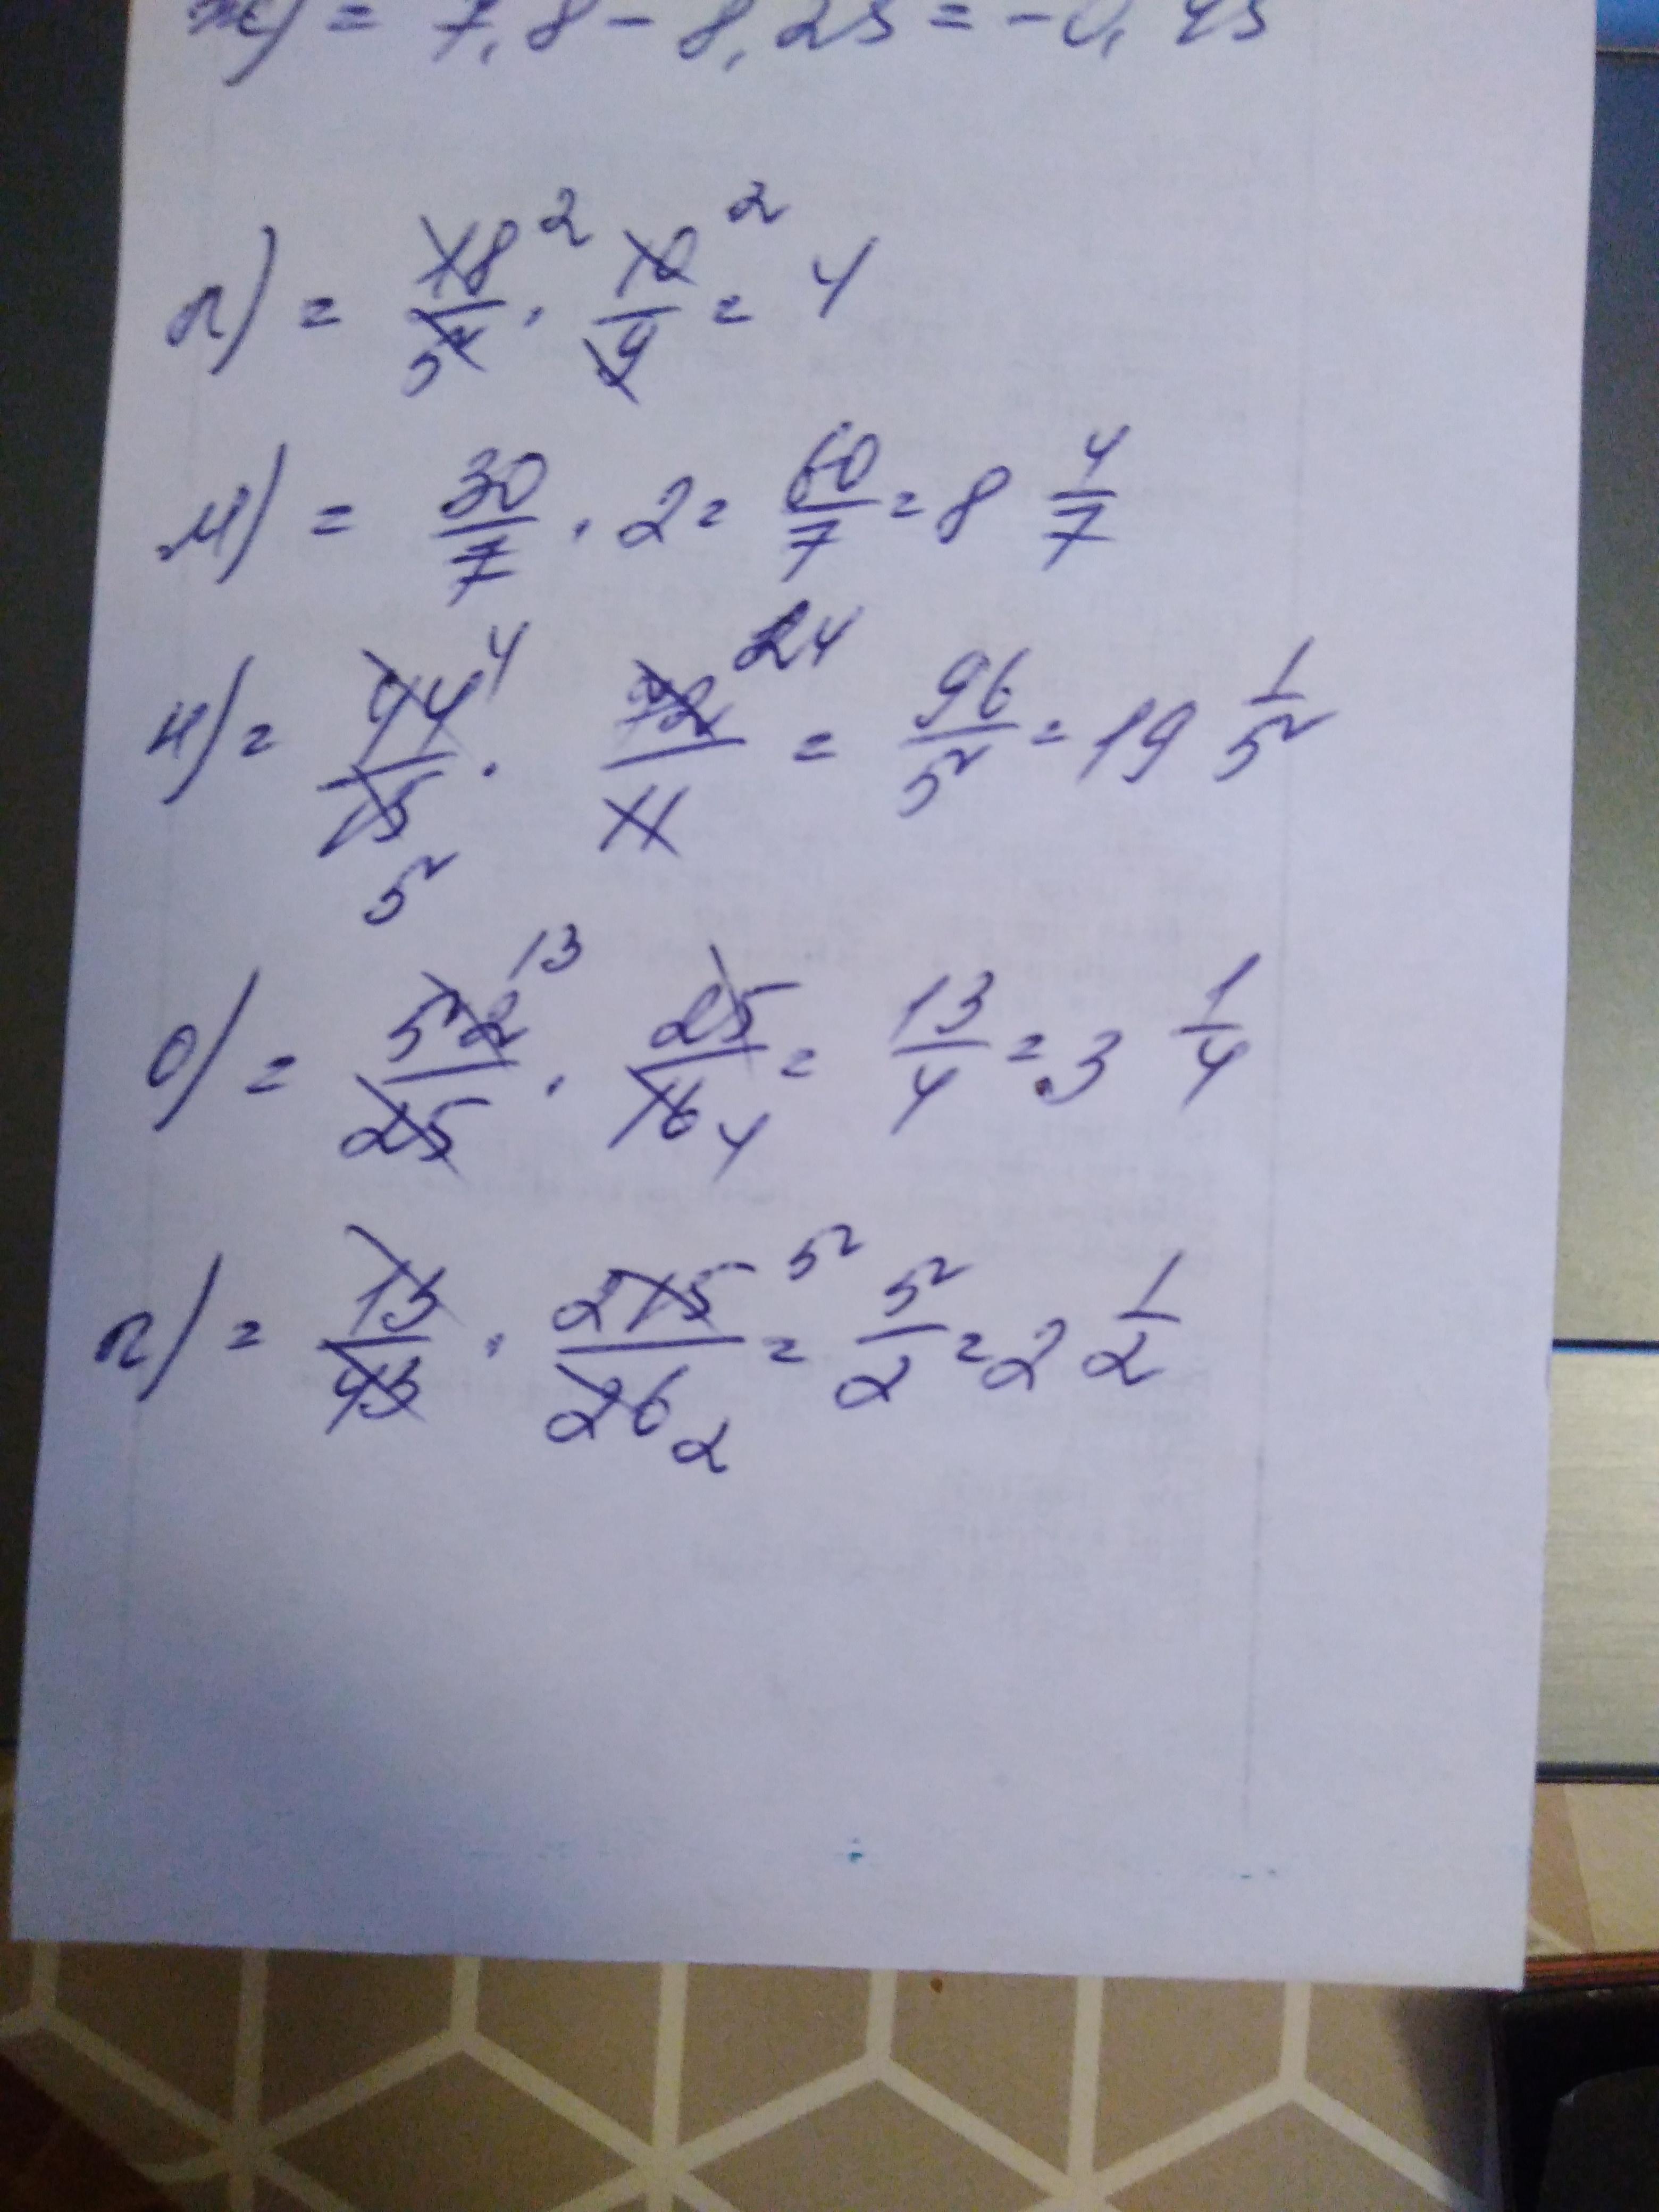 ж) = 7,8 - 8,25 = -0,45
л) = 18/5 2 · 10/9 2 = 4
м) = 30/7 · 2 = 60/7 = 8 4/7
н) = 44/15 4 5 · 72/11 24 = 96/5 = 19 1/5
о) = 52/25 13 · 25/16 4 = 13/4 = 3 1/4
п) = 13/43 · 215/26 5 2 = 5/2 = 2 1/2